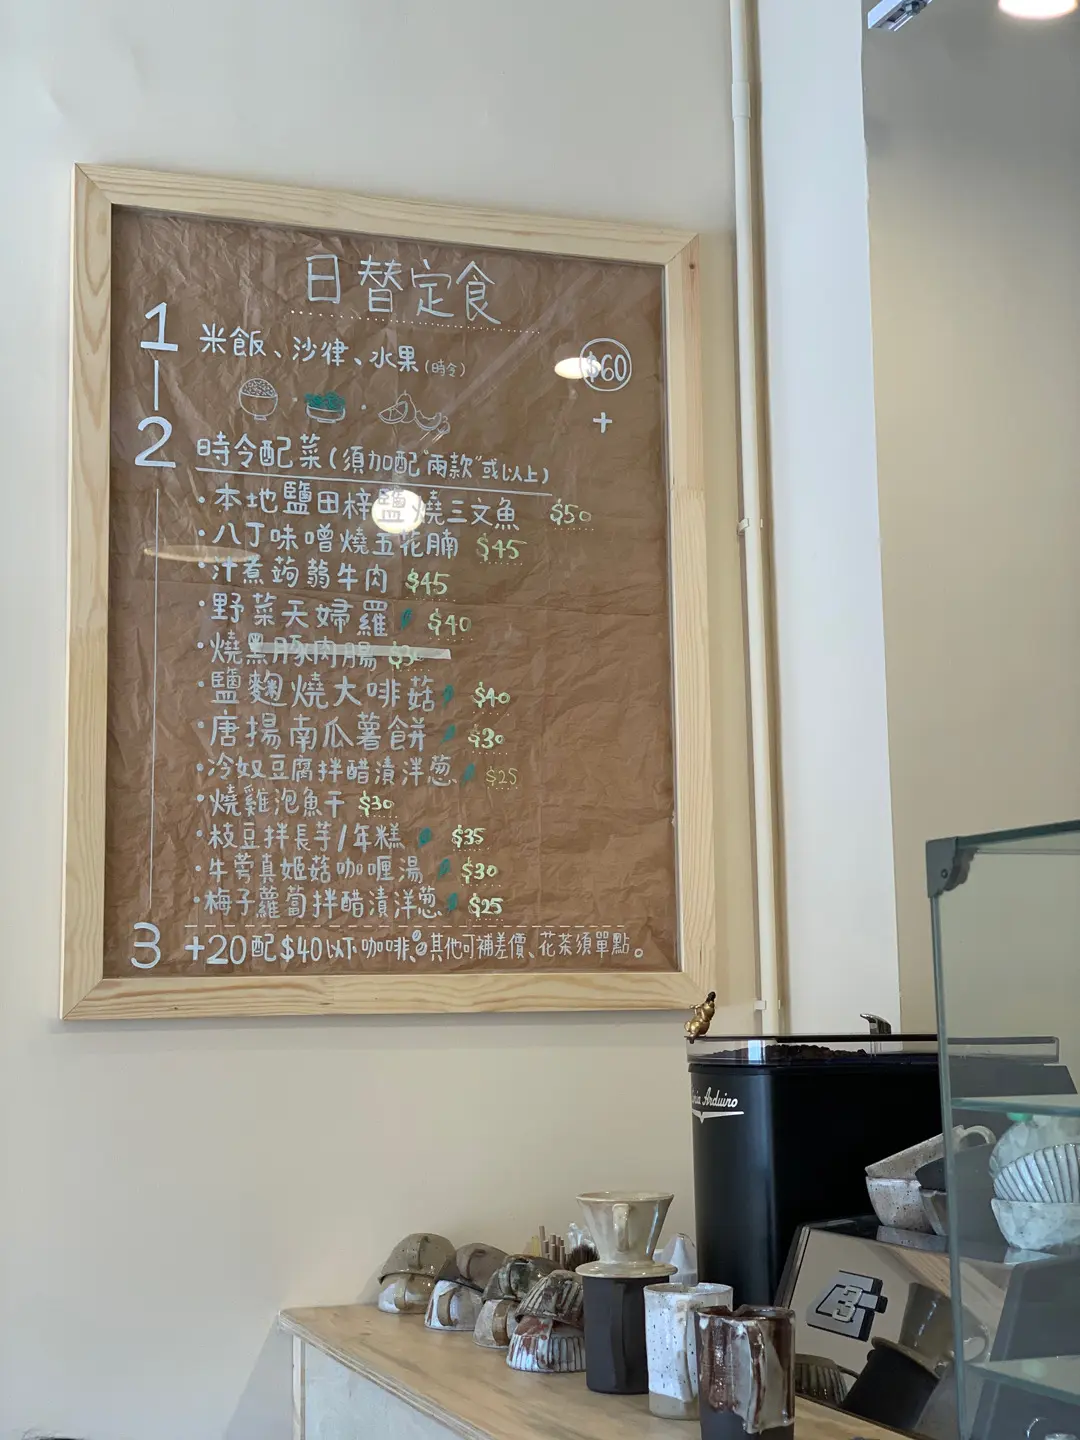 日替定食
1 米飯、沙律、水果(時令) $60
+
2 時令配菜(須加配"兩款"或以上)
·本地鹽田梓鹽燒三文魚 $50
·八丁味噌燒五花腩 $45
·汁煮蒟蒻牛肉 $45
·野菜天婦羅 $40
·燒黑豚肉腸
·鹽麴燒大啡菇 $40
·唐揚南瓜薯餅 $30
·冷奴豆腐拌醋漬洋葱 $25
·燒雞泡魚干 $30
·枝豆拌長芋/年糕 $35
·牛蒡真姬菇咖喱湯 $30
·梅子蘿蔔拌醋漬洋葱 $25
3 +20配$40以下咖啡、其他可補差價、花茶須單點。
Arduino